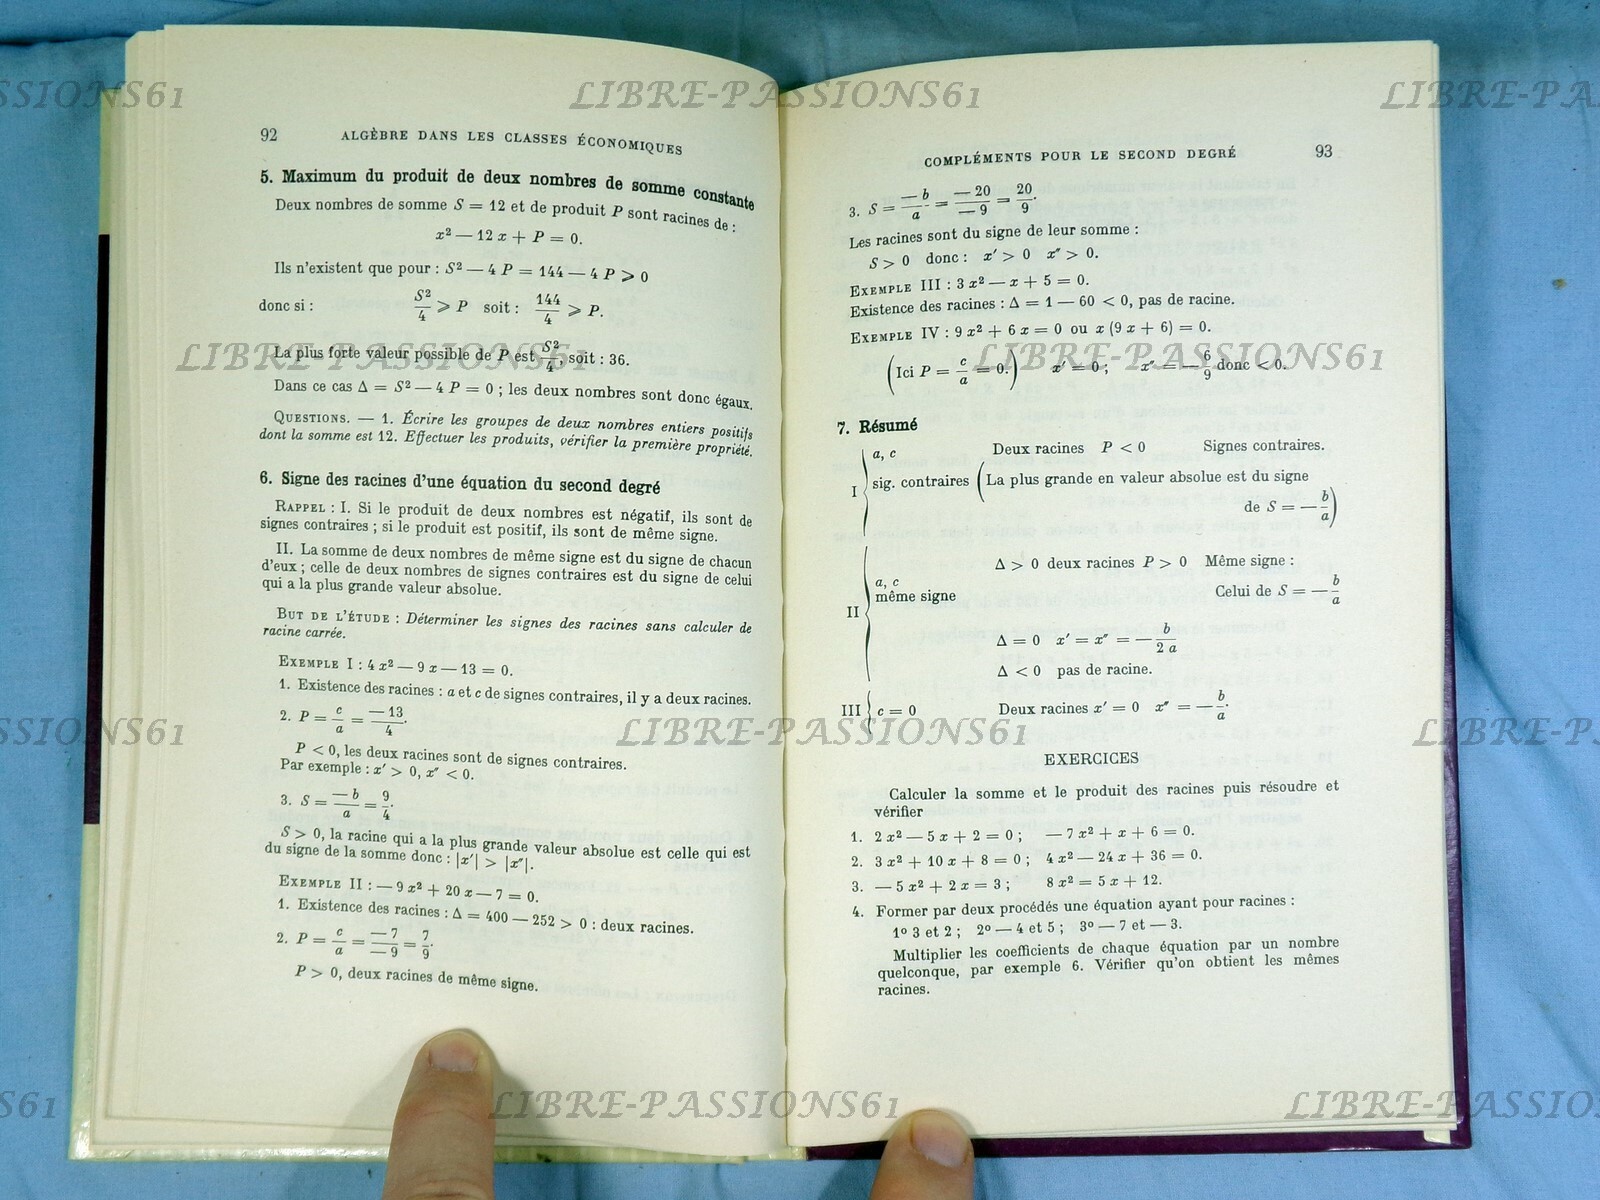 92 ALGÈBRE DANS LES CLASSES ÉCONOMIQUES
5. Maximum du produit de deux nombres de somme constante
Deux nombres de somme S = 12 et de produit P sont racines de :
x² — 12 x + P = 0.
Ils n'existent que pour : S² — 4 P = 144 — 4 P ⩾ 0
donc si : S²/4 ⩾ P soit : 144/4 ⩾ P.
La plus forte valeur possible de P est S²/4, soit : 36.
Dans ce cas Δ = S² — 4 P = 0 ; les deux nombres sont donc égaux.
QUESTIONS. — 1. Écrire les groupes de deux nombres entiers positifs
dont la somme est 12. Effectuer les produits, vérifier la première propriété.
6. Signe des racines d'une équation du second degré
RAPPEL : I. Si le produit de deux nombres est négatif, ils sont de
signes contraires ; si le produit est positif, ils sont de même signe.
II. La somme de deux nombres de même signe est du signe de chacun
d'eux ; celle de deux nombres de signes contraires est du signe de celui
qui a la plus grande valeur absolue.
BUT DE L'ÉTUDE : Déterminer les signes des racines sans calculer de
racine carrée.
EXEMPLE I : 4 x² — 9 x — 13 = 0.
1. Existence des racines : a et c de signes contraires, il y a deux racines.
2. P = c/a = —13/4.
P < 0, les deux racines sont de signes contraires.
Par exemple : x′ > 0, x″ < 0.
3. S = —b/a = 9/4.
S > 0, la racine qui a la plus grande valeur absolue est celle qui est
du signe de la somme donc : |x′| > |x″|.
EXEMPLE II : — 9 x² + 20 x — 7 = 0.
1. Existence des racines : Δ = 400 — 252 > 0 : deux racines.
2. P = c/a = —7/—9 = 7/9.
P > 0, deux racines de même signe.
COMPLÉMENTS POUR LE SECOND DEGRÉ 93
3. S = —b/a = —20/—9 = 20/9.
Les racines sont du signe de leur somme :
S > 0 donc : x′ > 0 x″ > 0.
EXEMPLE III : 3 x² — x + 5 = 0.
Existence des racines : Δ = 1 — 60 < 0, pas de racine.
EXEMPLE IV : 9 x² + 6 x = 0 ou x (9 x + 6) = 0.
(Ici P = c/a = 0.) x′ = 0 ; x″ = — 6/9 donc < 0.
7. Résumé
I { a, c Deux racines P < 0 Signes contraires.
sig. contraires (La plus grande en valeur absolue est du signe
de S = — b/a)
Δ > 0 deux racines P > 0 Même signe :
II { a, c même signe Celui de S = — b/a
Δ = 0 x′ = x″ = — b/2 a
Δ < 0 pas de racine.
III { c = 0 Deux racines x′ = 0 x″ = — b/a.
EXERCICES
Calculer la somme et le produit des racines puis résoudre et
vérifier
1. 2 x² — 5 x + 2 = 0 ; — 7 x² + x + 6 = 0.
2. 3 x² + 10 x + 8 = 0 ; 4 x² — 24 x + 36 = 0.
3. — 5 x² + 2 x = 3 ; 8 x² = 5 x + 12.
4. Former par deux procédés une équation ayant pour racines :
1º 3 et 2 ; 2º — 4 et 5 ; 3º — 7 et — 3.
Multiplier les coefficients de chaque équation par un nombre
quelconque, par exemple 6. Vérifier qu'on obtient les mêmes
racines.
SSIONS61 LIBRE-PASSIONS61 LIBRE-PA
LIBRE-PASSIONS61 LIBRE-PASSIONS61
SSIONS61 LIBRE-PASSIONS61 LIBRE-P
S61 LIBRE-PASSIONS61 LIBRE-PASSION